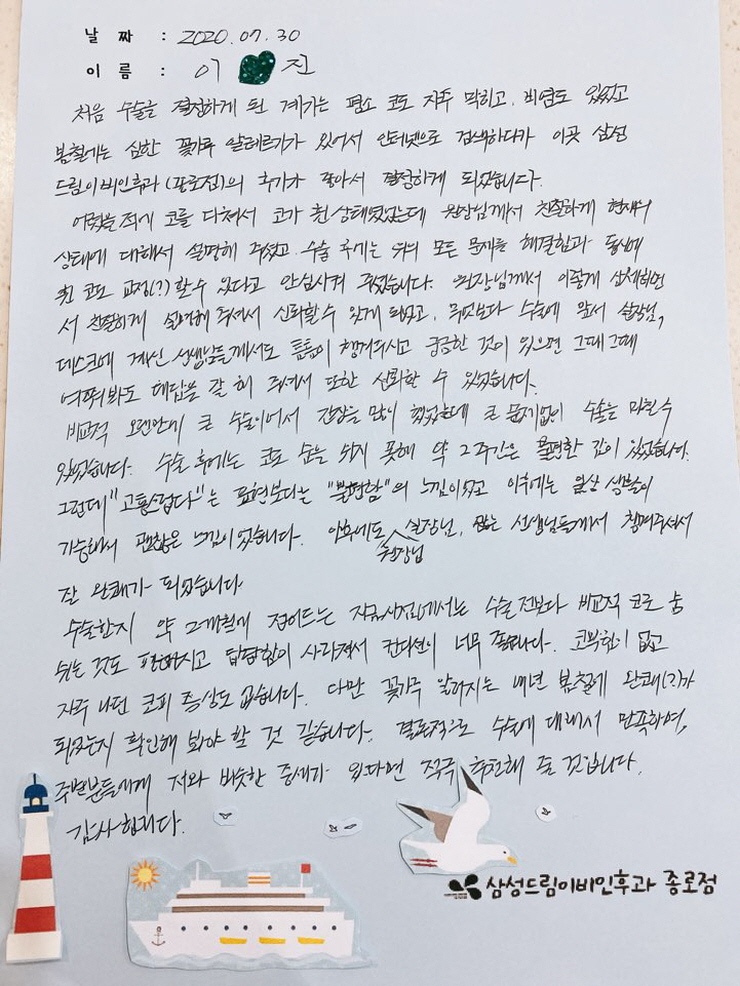 날 짜 : 2020.07.30
이 름 : 이 진
처음 수술을 결정하게 된 계기는 평소 코도 자주 막히고, 비염도 있었고
봄철에는 심한 꽃가루 알레르기가 있어서 인터넷으로 검색하다가 이곳 삼성
드림이비인후과(종로점)의 후기가 좋아서 결정하게 되었습니다.
어렸을 적에 코를 다쳐서 코가 휜 상태였었는데 원장님께서 친절하게 현재의
상태에 대해서 설명해 주셨고 수술 후에는 위의 모든 문제를 해결함과 동시에
휜 코도 교정(?)할 수 있다고 안심시켜 주셨습니다. 원장님께서 이렇게 상세하면
서 친절하게 설명해 주셔서 신뢰할 수 있게 되었고, 무엇보다 수술에 앞서 실장님,
데스크에 계신 선생님들께서도 틈틈이 챙겨주시고 궁금한 것이 있으면 그때그때
여쭤봐도 대답을 잘 해 주셔서 또한 신뢰할 수 있었습니다.
비교적 오랜만에 큰 수술이어서 긴장을 많이 했었는데 큰 문제없이 수술을 마칠 수
있었습니다. 수술 후에는 코로 숨을 쉬지 못해 약 2주간은 불편한 감이 있었습니다.
그런데 "고통스럽다"는 표현보다는 "불편함"의 느낌이었고 이후에는 일상 생활이
가능해서 괜찮은 느낌이었습니다. 이후에도 원장님 실장님, 많은 선생님들께서 챙겨주셔서
잘 완쾌가 되었습니다
수술한지 약 2개월에 접어드는 지금시점에서는 수술 전보다 비교적 코로 숨
쉬는 것도 편해지고 답답함이 사라져서 컨디션이 너무 좋습니다. 코막힘이 없고
자주 나던 코피 증상도 없습니다. 다만 꽃가루 알러지는 내년 봄철에 완쾌(?)가
되었는지 확인해 봐야 할 것 같습니다. 결론적으로 수술에 대해서 만족하며,
주변분들에게 저와 비슷한 증세가 있다면 적극 추천해 줄 것입니다.
감사합니다.
삼성드림이비인후과 종로점